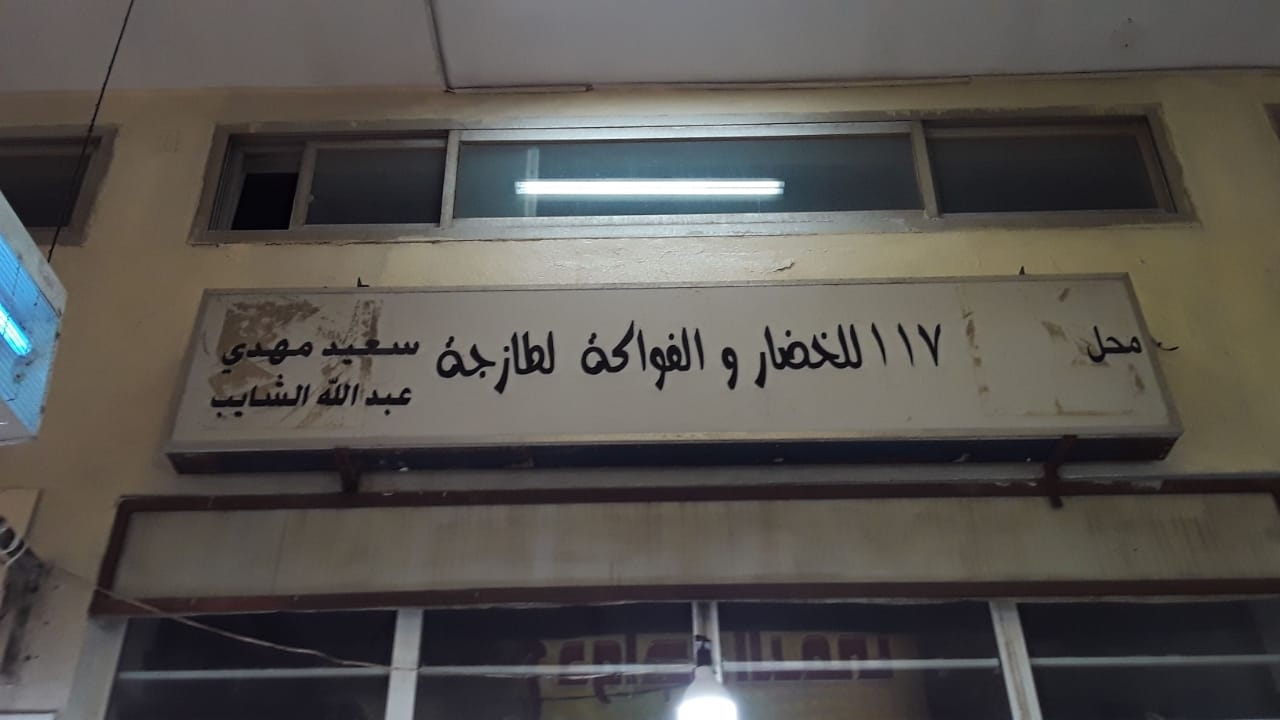 محل ١١٧ للخضار و الفواكة لطازجة
سعيد مهدي
عبد الله الشايب